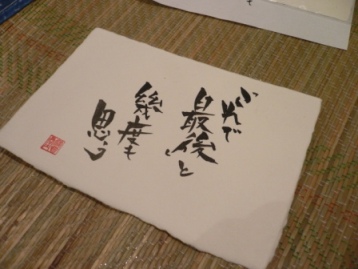 これで
最後と
幾度も
思う